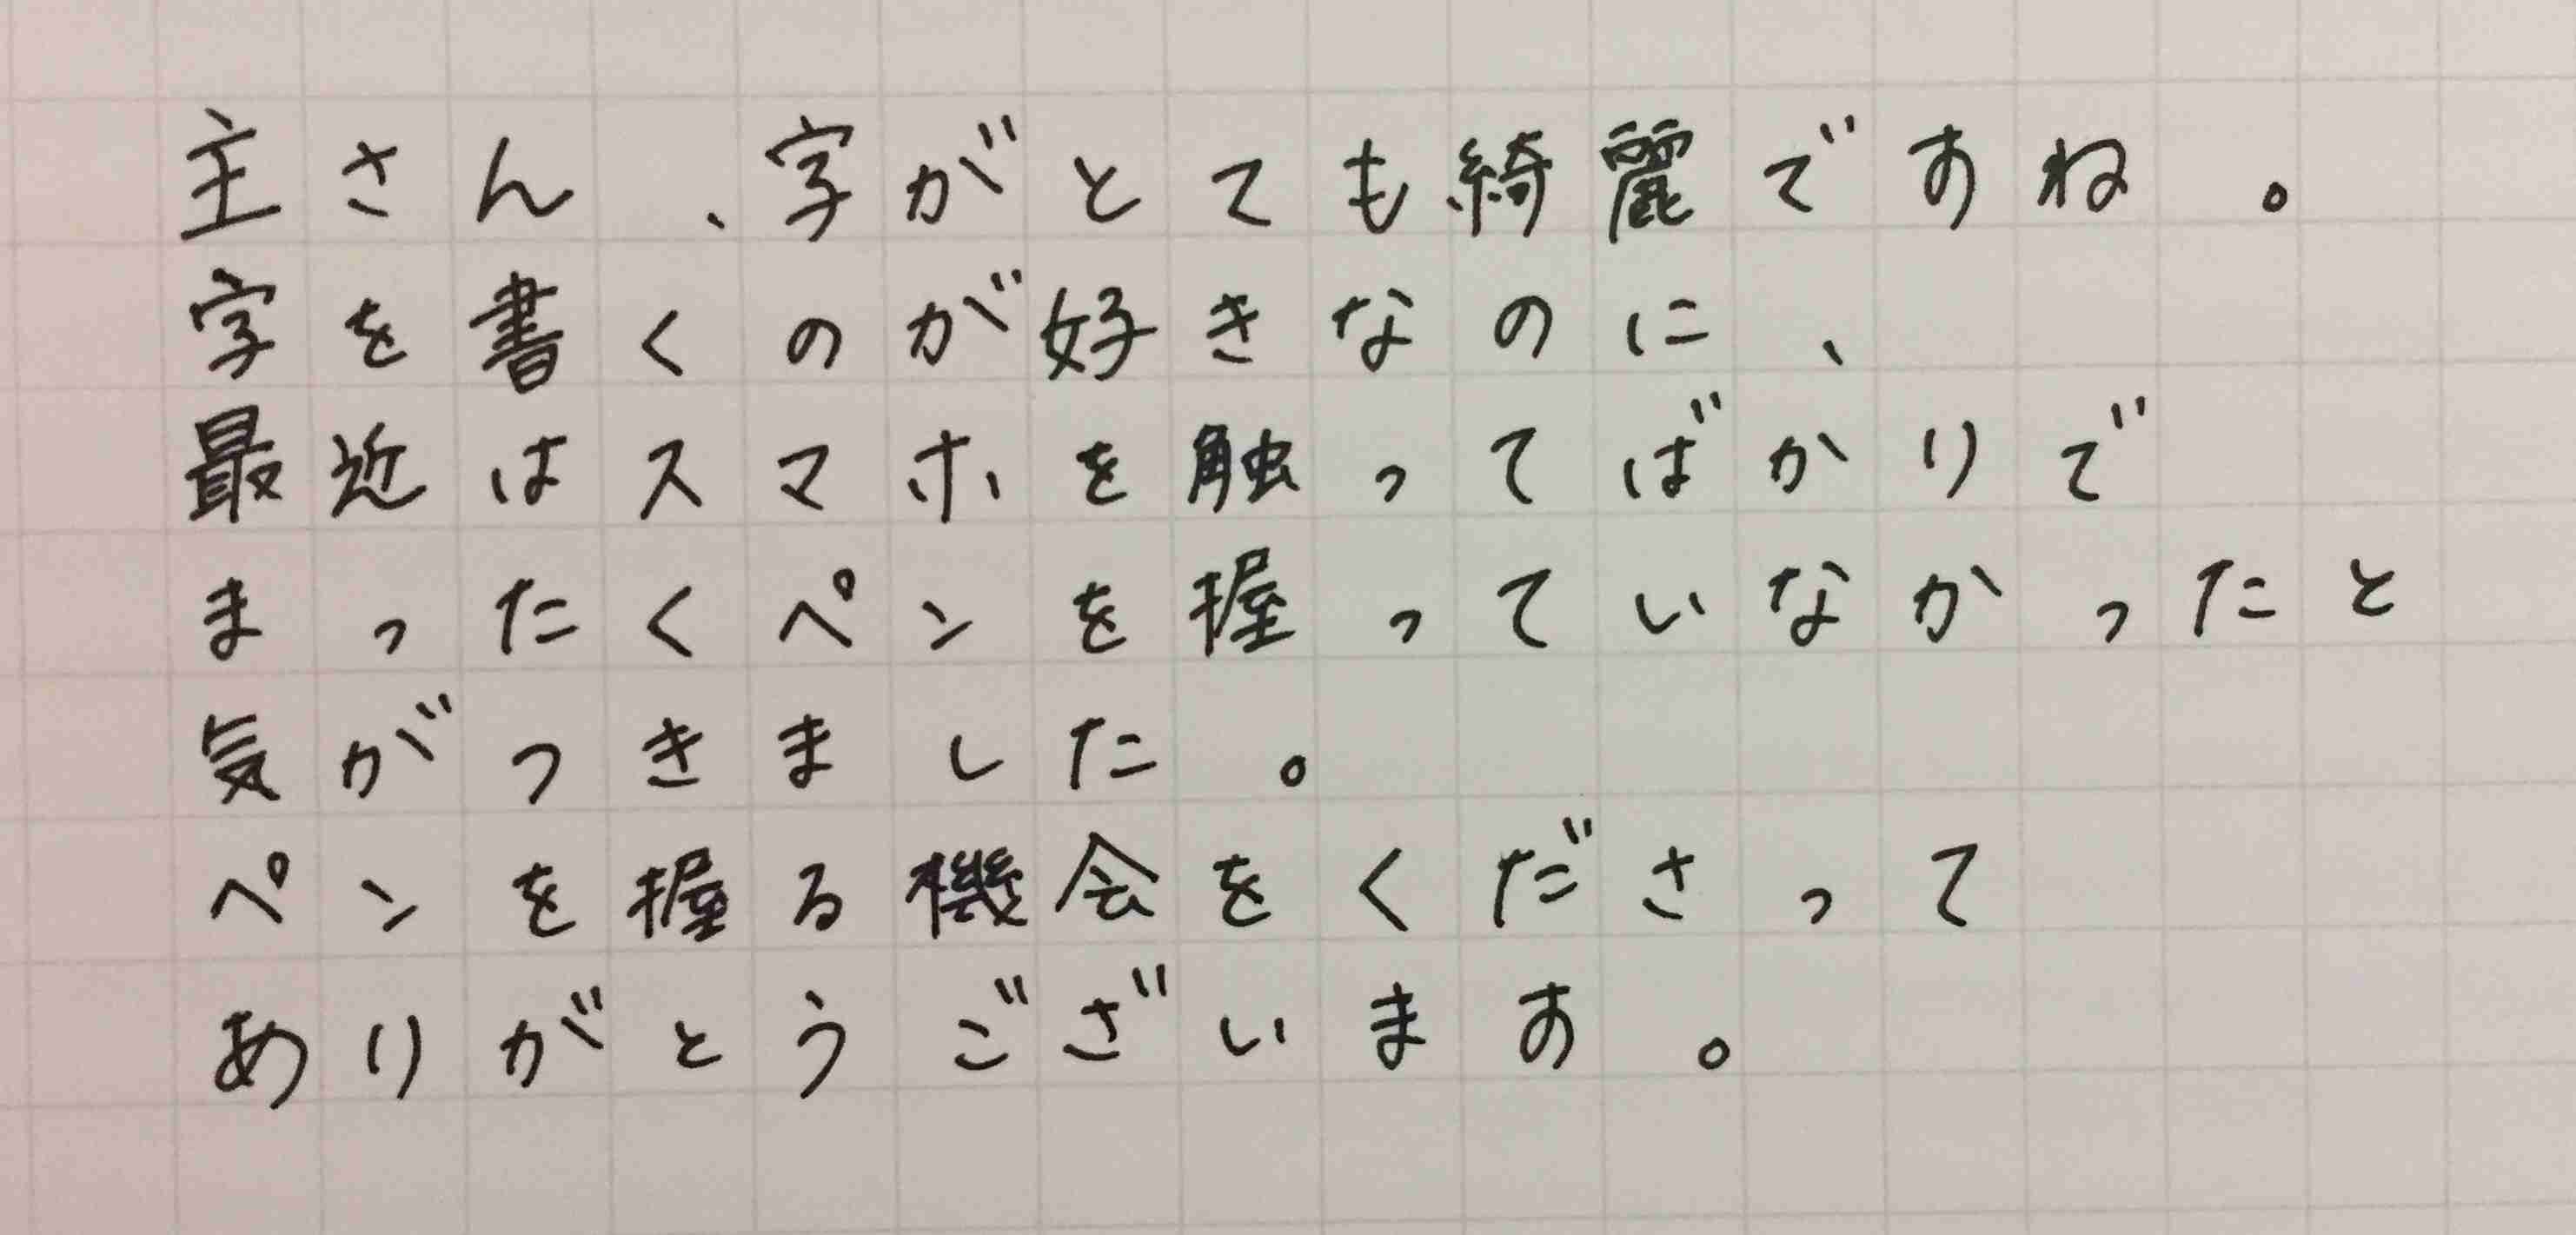 主さん、字がとても綺麗ですね。
字を書くのが好きなのに、
最近はスマホを触ってばかりで
まったくペンを握っていなかったと
気がつきました。
ペンを握る機会をくださって
ありがとうございます。